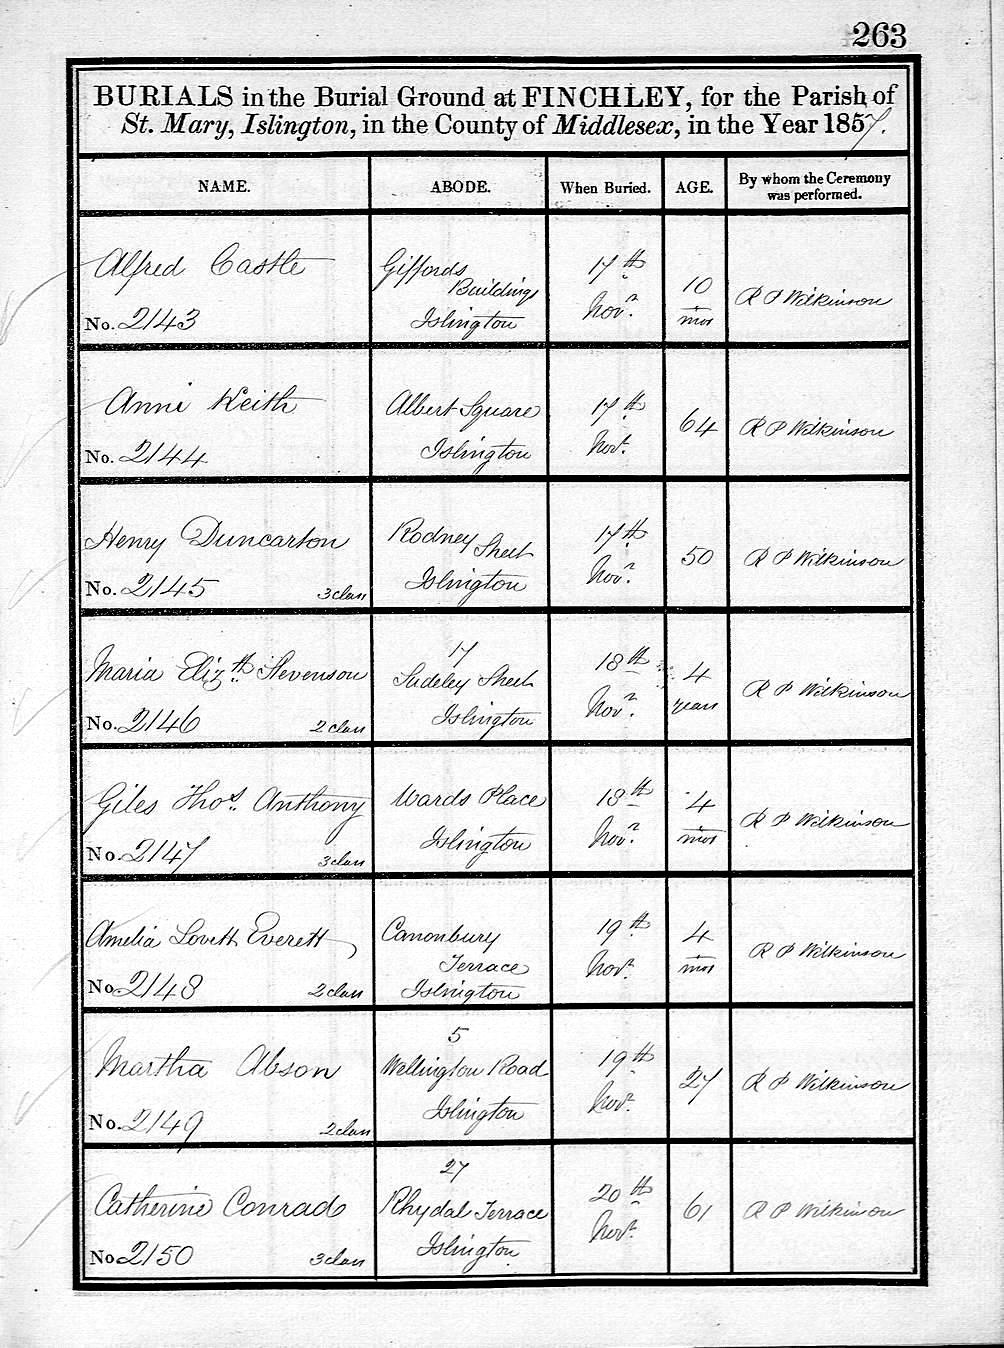 263
BURIALS in the Burial Ground at FINCHLEY, for the Parish of
St. Mary, Islington, in the County of Middlesex, in the Year 1857.
NAME. ABODE. When Buried. AGE. By whom the Ceremony was performed.
Alfred Castle
No. 2143
Giffords
Buildings
Islington
17th
Novr.
10
mos
R P Wilkinson
Anne Keith
No. 2144
Albert Square
Islington
17th
Novr.
64
R P Wilkinson
Henry Duncarton
No. 2145 3 class
Rodney Street
Islington
17th
Novr.
50
R P Wilkinson
Maria Elizth. Stevenson
No. 2146 2 class
17
Sudeley Street
Islington
18th
Novr.
4
years
R P Wilkinson
Giles Thos. Anthony
No. 2147 3 class
Wards Place
Islington
18th
Novr.
4
mos
R P Wilkinson
Amelia Lovett Everett
No. 2148 2 class
Canonbury
Terrace
Islington
19th
Novr.
4
mos
R P Wilkinson
Martha Abson
No. 2149 2 class
5
Wellington Road
Islington
19th
Novr.
27
R P Wilkinson
Catherine Conrad
No. 2150 3 class
27
Rhydal Terrace
Islington
20th
Novr.
61
R P Wilkinson